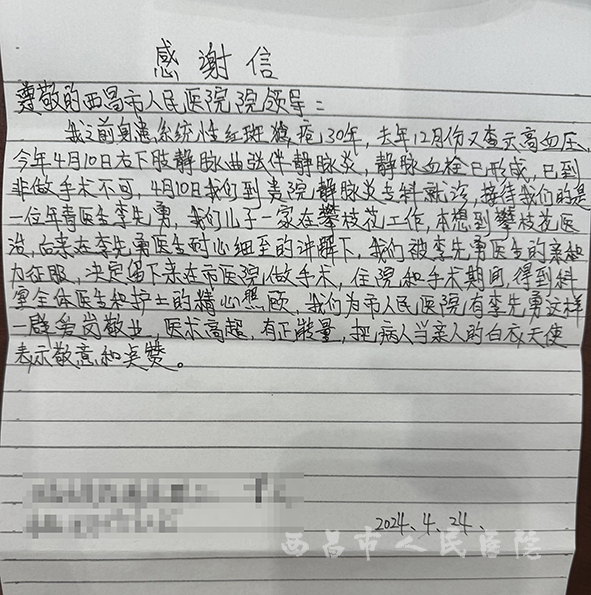 感谢信
尊敬的西昌市人民医院院领导：
我之前身患系统性红斑狼疮30年，去年12月份又查示高血压，
今年4月10日右下肢静脉曲张伴静脉炎，静脉血栓已形成，已到
非做手术不可，4月10日我们到贵院静脉炎专科就诊，接待我们的是
一位年青医生李先勇，我们儿子一家在攀枝花工作，本想到攀枝花医
治，后来在李先勇医生耐心细至的讲解下，我们被李先勇医生的亲和
力征服，决定留下来在市医院做手术，住院和手术期间，得到科
室全体医生和护士的精心照顾，我们为市人民医院有李先勇这样
一群爱岗敬业，医术高超，有正能量，把病人当亲人的白衣天使
表示敬意和美赞。
2024、4、24、
西昌市人民医院